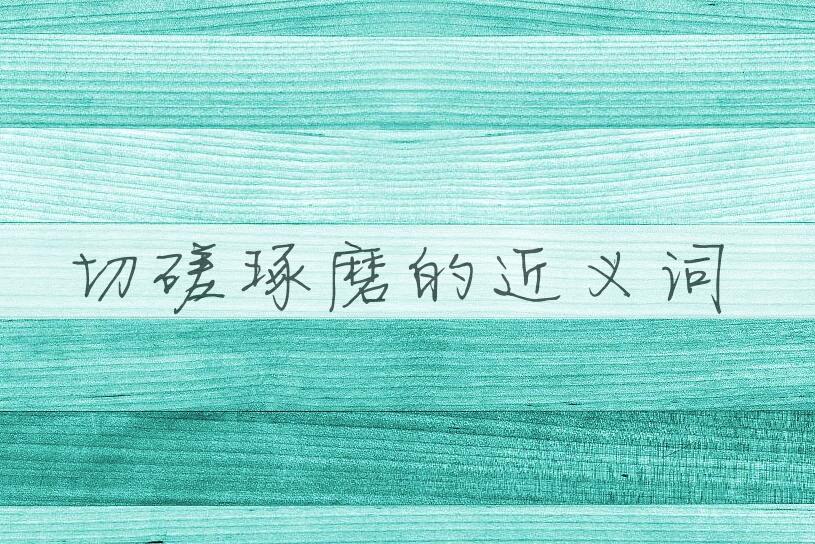 切磋琢磨的近义词